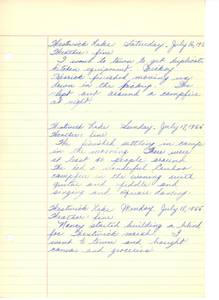 Lake Saturday, July 16, 19
Weather: fine
I went to town to get duplicate
kitchen equipment.
finished moving my
down in the pickup. We
slept out around a campfire
at night.
Lake Sunday, July 17, 1955
Weather: fine
We finished settling in camp
in the morning. There were
at least 20 people around
the
campfire in the evening with
guitar and fiddle and
singing and square dancing.
Lake Monday, July 18, 1955
Weather: fine
Nancy started building a blind
for marsh. I
went to town and bought
canvas and groceries